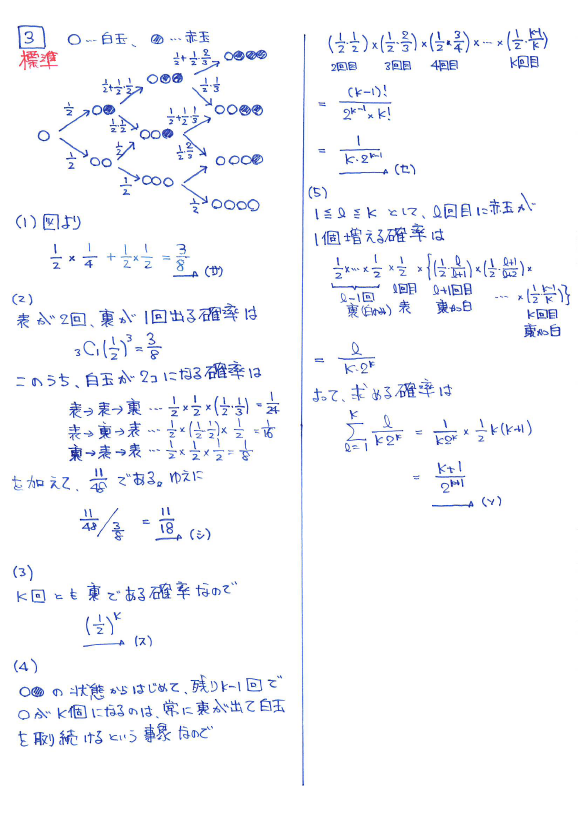 3 ○…白玉、●…赤玉
標準
1/2+1/2・2/3
1/2+1/2・1/2
1/2・1/3
1/2
1/2・1/2
1/2+1/2・1/3
1/2
1/2
1/2・2/3
1/2
1/2
(1) 図より
1/2 × 1/4 + 1/2×1/2 = 3/8 (サ)
(2)
表が2回、裏が1回出る確率は
₃C₁(1/2)³=3/8
このうち、白玉が2コになる確率は
表→表→裏 … 1/2×1/2×(1/2・1/3) = 1/24
表→裏→表 … 1/2×(1/2・1/2)×1/2 = 1/16
裏→表→表 … 1/2×1/2×1/2 = 1/8
を加えて、11/48 である。ゆえに
11/48 / 3/8 = 11/18 (シ)
(3)
K回とも裏である確率なので
(1/2)^K (ス)
(4)
○●の状態からはじめて、残りK-1回で
○がK個になるのは、常に裏が出て白玉
を取り続けるという事象なので
(1/2・1/2)×(1/2・2/3)×(1/2×3/4)×…×(1/2・K-1/K)
2回目 3回目 4回目 K回目
= (K-1)! / 2^{K-1}×K!
= 1 / K・2^{K-1} (セ)
(5)
1≦ℓ≦K として、ℓ回目に赤玉が
1個増える確率は
1/2×…×1/2 × 1/2 × {(1/2・ℓ/ℓ+1)×(1/2・ℓ+1/ℓ+2)×
ℓ-1回 ℓ回目 ℓ+1回目 … ×(1/2・K-1/K)}
裏(白のみ) 表 裏から白 K回目
裏から白
= ℓ / K・2^K
よって、求める確率は
Σ_{ℓ=1}^{K} ℓ/K2^K = 1/K2^K × 1/2 K(K+1)
= K+1 / 2^{K+1} (ソ)